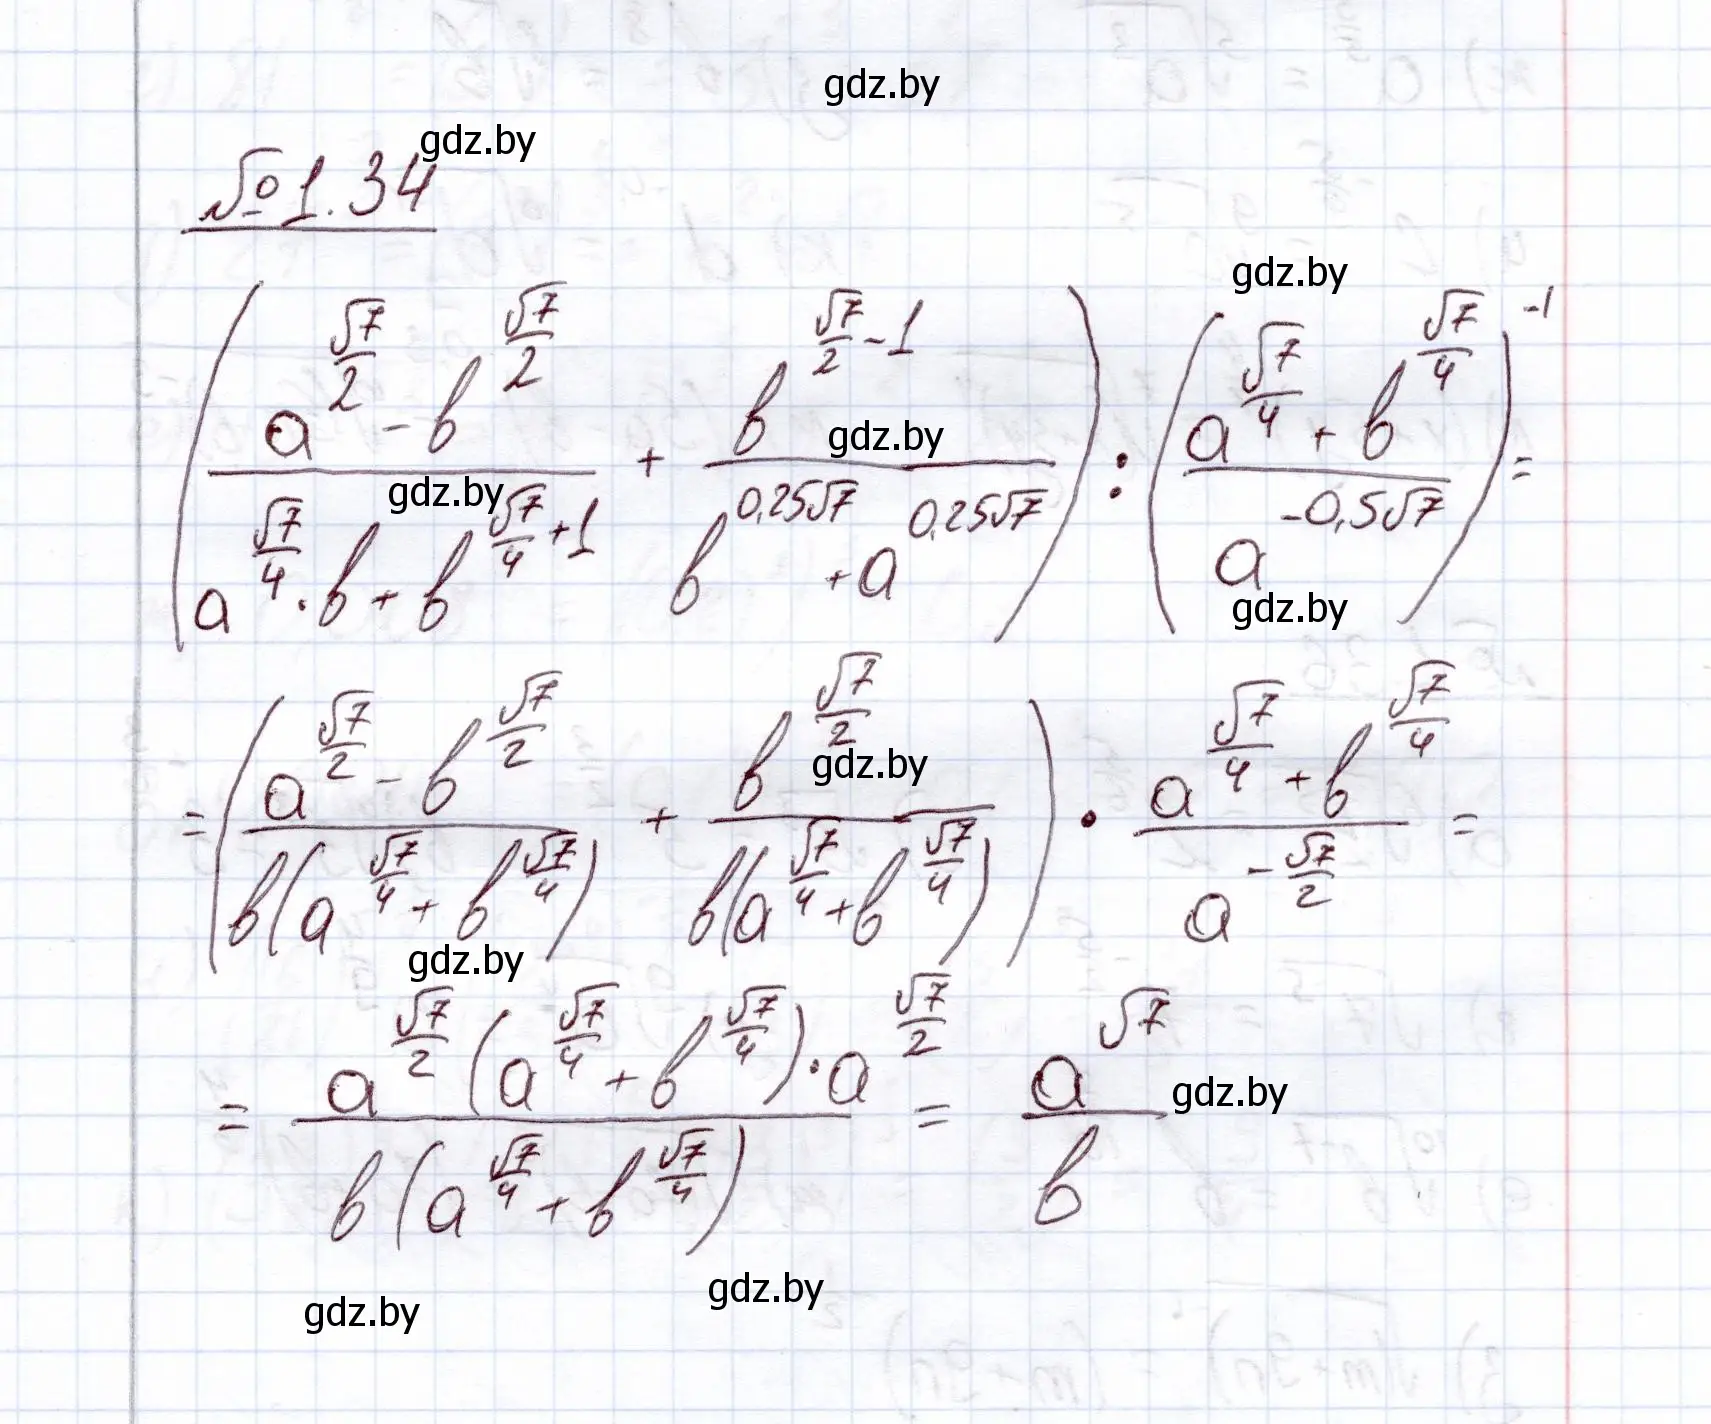 gdz.by
gdz.by
№1.34
gdz.by
(a^(√7/2) - b^(√7/2) / a^(√7/4)·b + b^(√7/4 + 1) + b^(√7/2 - 1) / b^(0,25√7) + a^(0,25√7)) : (a^(√7/4) + b^(√7/4) / a^(-0,5√7))^(-1) =
gdz.by
gdz.by
gdz.by
= (a^(√7/2) - b^(√7/2) / b(a^(√7/4) + b^(√7/4)) + b^(√7/2) / b(a^(√7/4) + b^(√7/4))) · a^(√7/4) + b^(√7/4) / a^(-√7/2) =
gdz.by
gdz.by
= a^(√7/2)(a^(√7/4) + b^(√7/4)) · a^(√7/2) / b(a^(√7/4) + b^(√7/4)) = a^(√7) / b
gdz.by
gdz.by
gdz.by